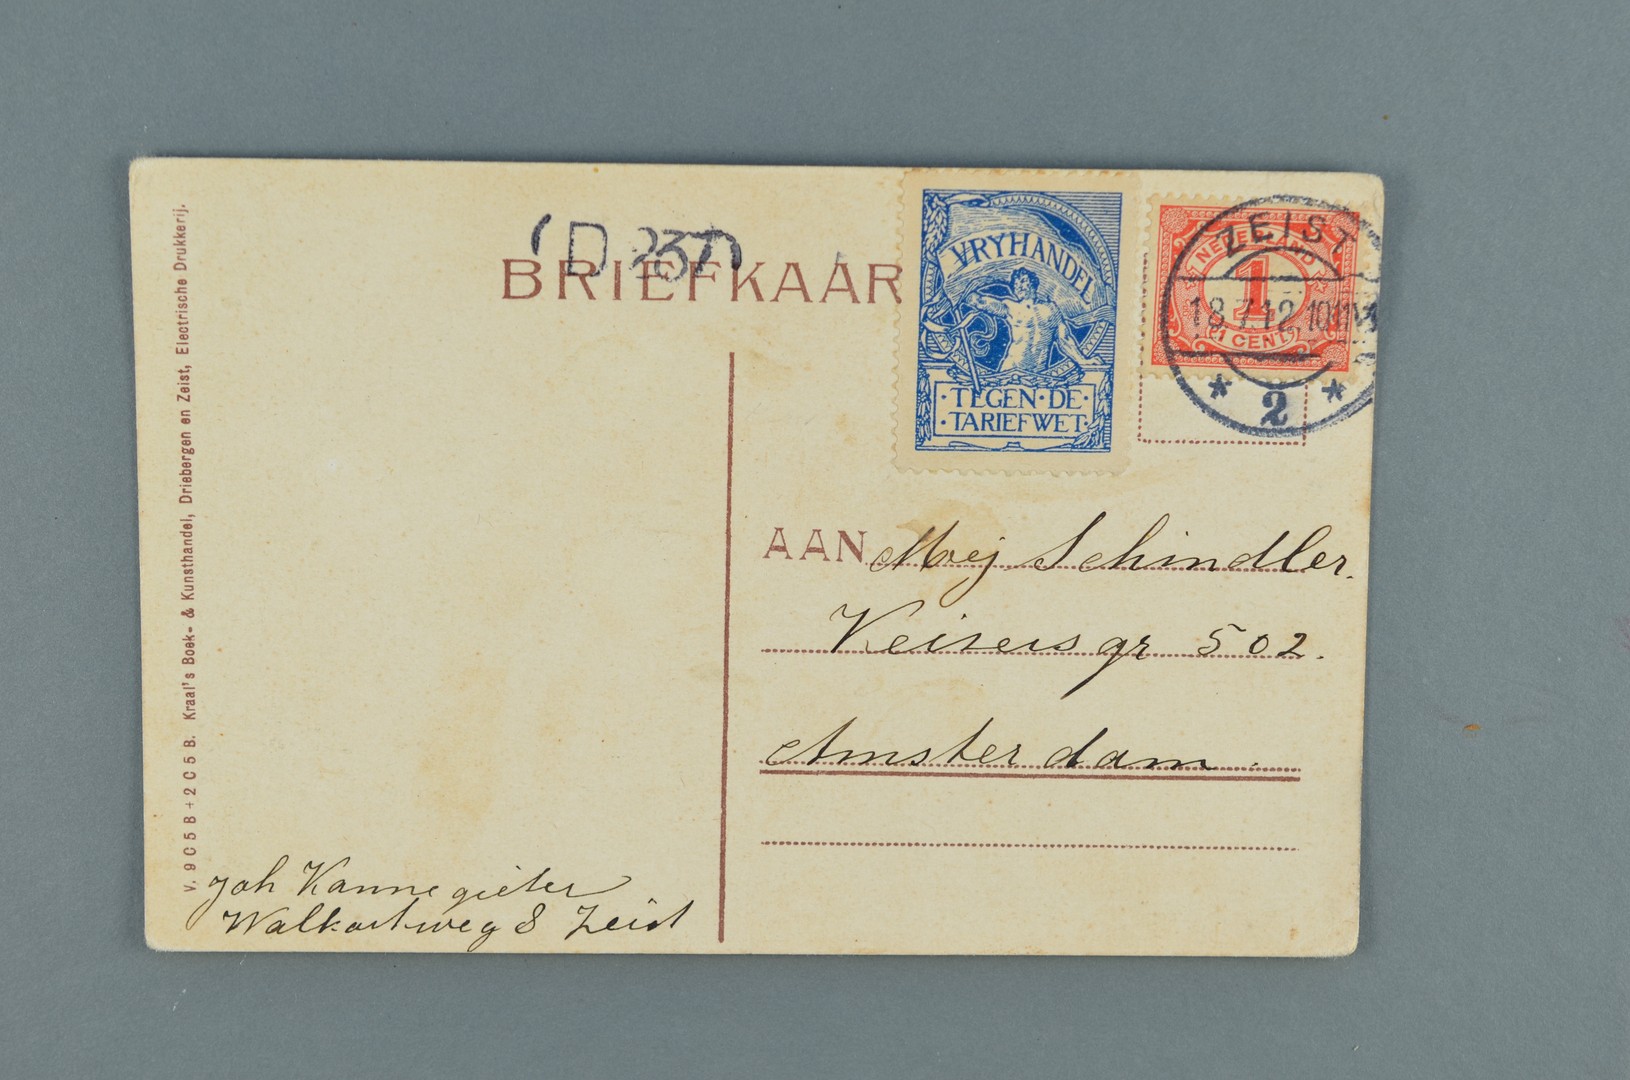 (D 237)
BRIEFKAAR
VRYHANDEL
·TEGEN·DE·
·TARIEFWET·
NEDERLAND
1
1 CENT
ZEIST
18.7.12.10
2
AAN Mej Schindler.
Keizersgr 502.
Amsterdam.
Joh Kannegieter
Walkartweg 8 Zeist
V. 9 0 5 B + 2 0 5 B. Kraal's Boek- & Kunsthandel, Driebergen en Zeist, Electrische Drukkerij.